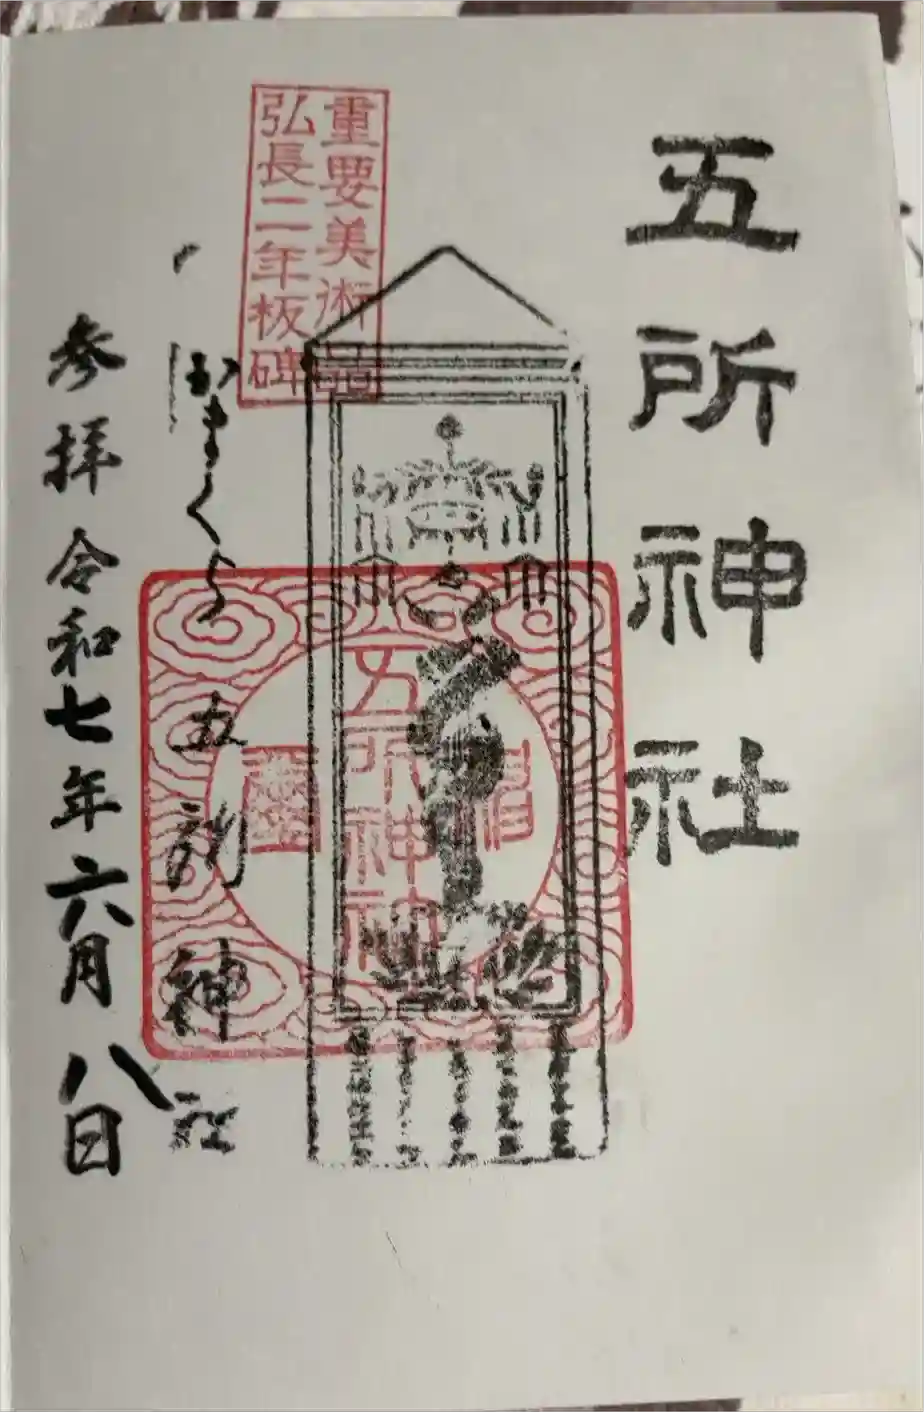 五所神社
重要美術品
弘長二年板碑
五所神社
かまくら 五所神社
参拝 令和七年六月八日